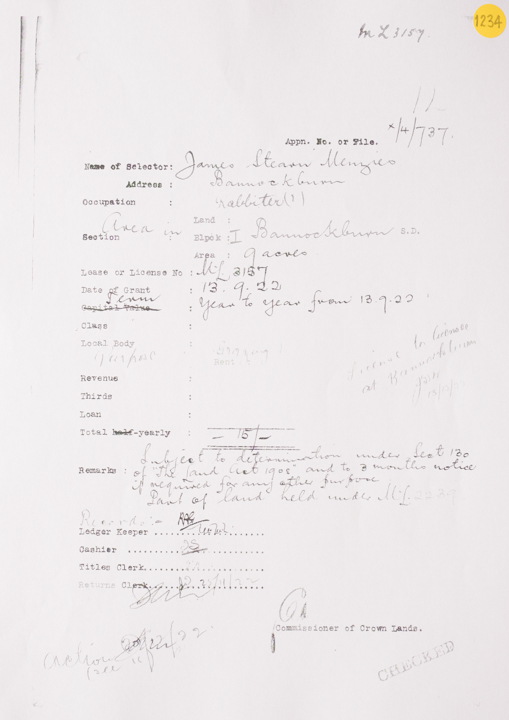 1234
M L 3157.
Appn. No. or File.
x/4/737.
Name of Selector: James Stearn Menzies
Address : Bannockburn
Occupation : rabbiter(?)
Land :
Area in
Section : Block : I Bannockburn S.D.
Area : 9 acres
Lease or License No : M.L 3157
Date of Grant : 13.9.22
Term
Capital Value : Year to Year from 13 9.22
Class :
Local Body :
Purpose Grazing
Revenue :
Thirds :
Loan :
License to licensee
at Bannockburn
Total half-yearly : - 15/-
Subject to determination under Sect 130
Remarks : of "The Land Act 1908" and to 3 months notice
if required for any other purpose
Part of land held under M.L
Records :-
Ledger Keeper
Cashier
Titles Clerk
Returns Clerk
Commissioner of Crown Lands.
CHECKED